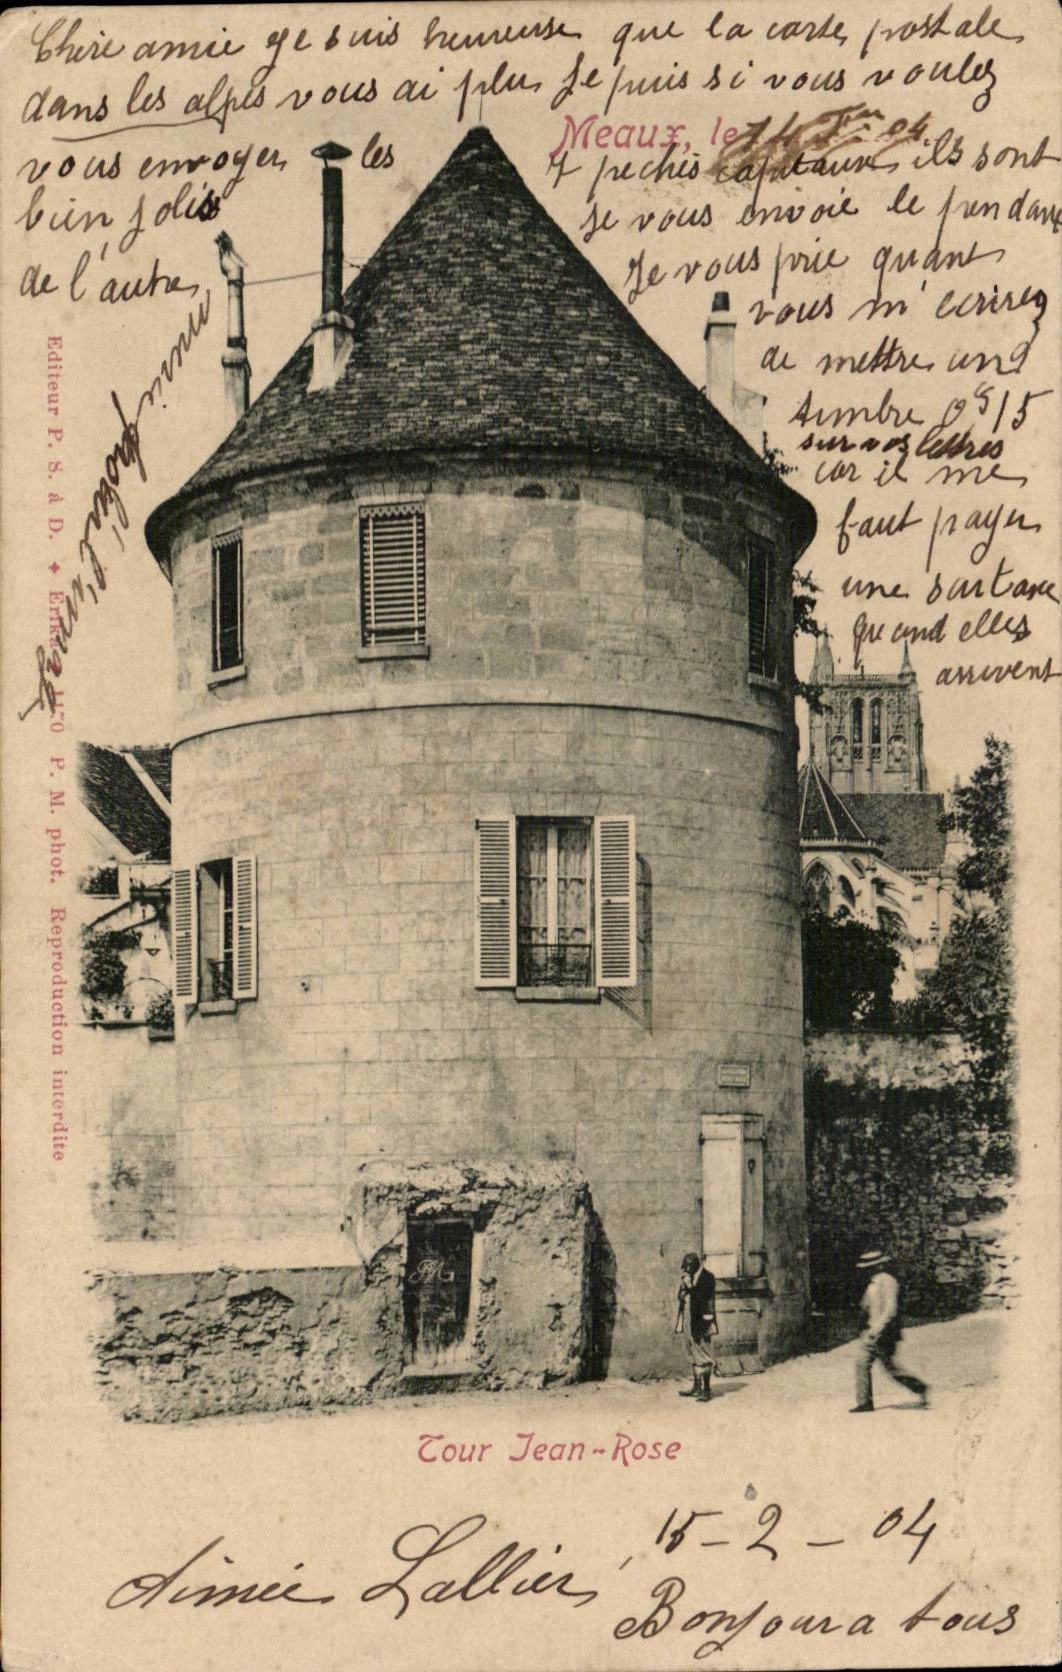 Chère amie Je suis heureuse que la carte postale
dans les alpes vous ai plu Je puis si vous voulez
Meaux, le 14 04
vous envoyer les 7 pechés capitaux ils sont
bien jolis Je vous envoie le pendant
de l'autre Je vous prie quant
vous m'écrirez
de mettre un
timbre 0 15
sur vos lettres
car il me
faut payer
une surtaxe
quand elles
arrivent
Editeur P. S. à D. ✦ Erika 1170 P. M. phot. Reproduction interdite
Tour Jean-Rose
15-2-04
Aimée Lallier
Bonjour a tous